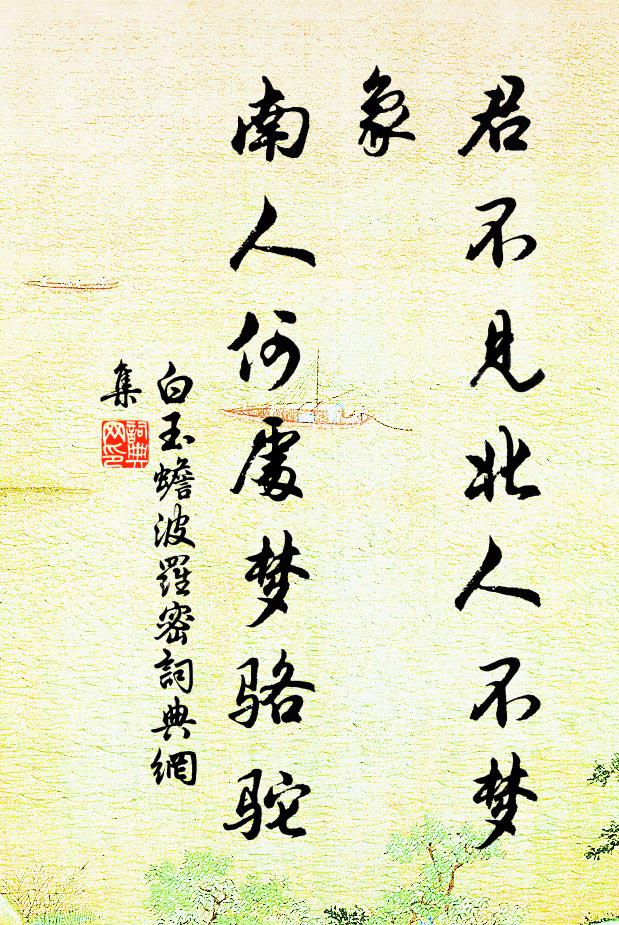 君不见北人不梦
象
南人何處梦骆驼
白玉蟾波羅密詞典網
集
詞典
网印